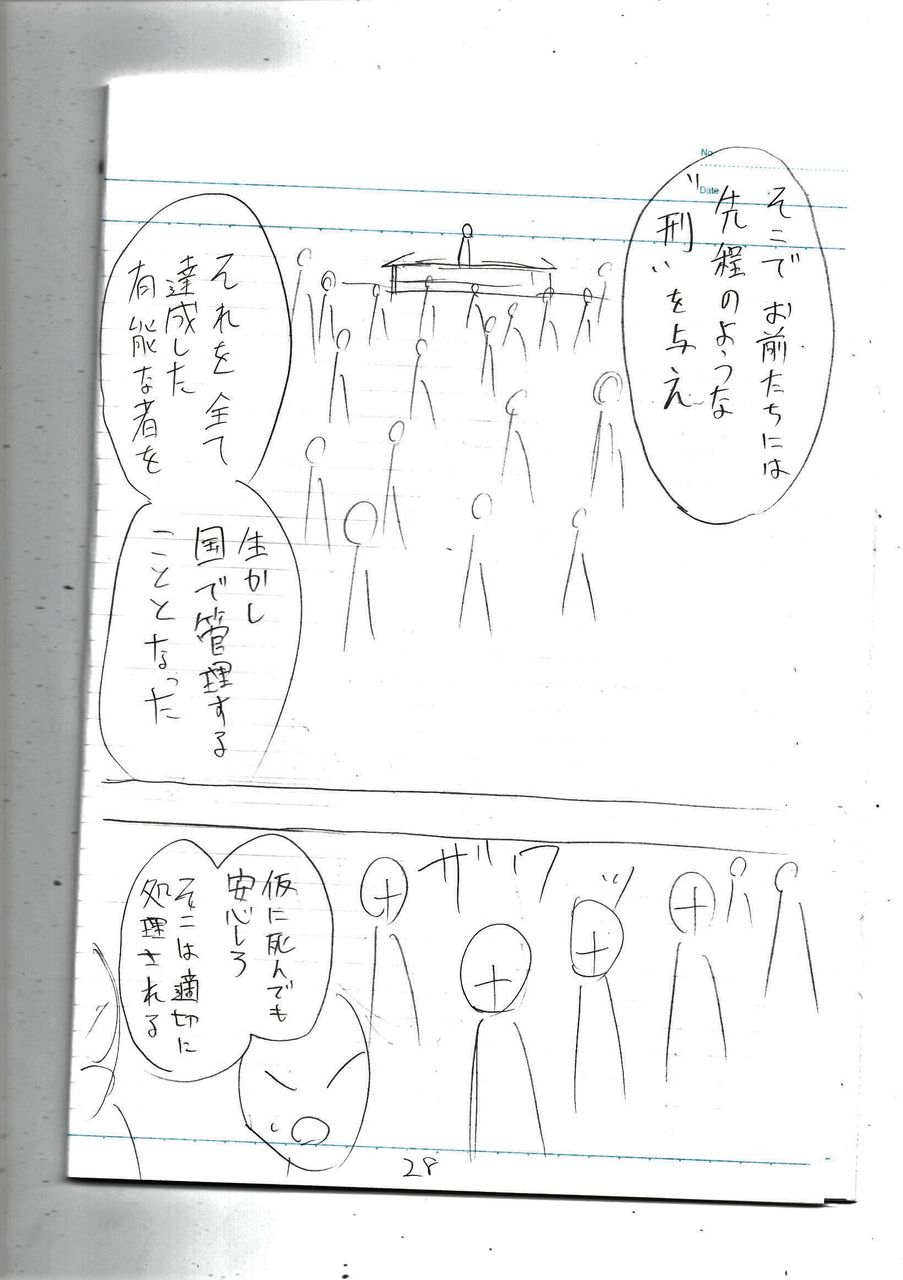 No.
Date
そこでお前たちには
先程のような
"刑"を与え
それを全て
達成した
有能な者を
生かし
国で管理する
こととなった
ザワッ
仮に死んでも
安心しろ
そこは適切に
処理される
28